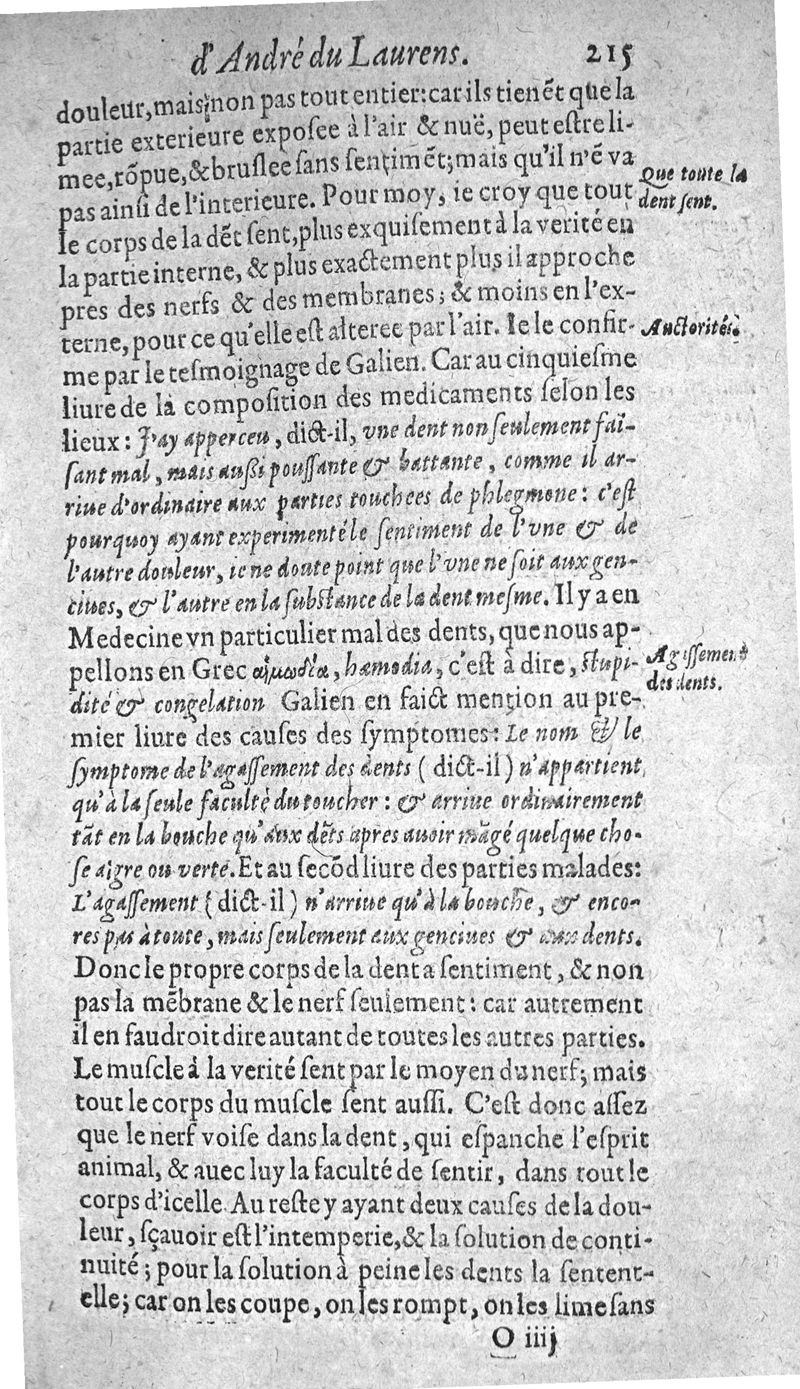 d'André du Laurens. 215
douleur, mais non pas tout entier: car ils tienẽt que la
partie exterieure exposee à l'air & nuë, peut estre li-
mee, rõpue, & bruslee sans sentimẽt; mais qu'il n'ẽ va
pas ainsi de l'interieure. Pour moy, ie croy que tout
Que toute la
dent sent.
le corps de la dẽt sent, plus exquisement à la verité en
la partie interne, & plus exactement plus il approche
pres des nerfs & des membranes; & moins en l'ex-
terne, pour ce qu'elle est alteree par l'air. Ie le confir-
Auctorités.
me par le tesmoignage de Galien. Car au cinquiesme
liure de la composition des medicaments selon les
lieux: J'ay apperceu, dict-il, vne dent non seulement fai-
sant mal, mais aussi poussante & battante, comme il ar-
riue d'ordinaire aux parties touchees de phlegmone: c'est
pourquoy ayant experimenté le sentiment de l'vne & de
l'autre douleur, ie ne doute point que l'vne ne soit aux gen-
ciues, & l'autre en la substance de la dent mesme. Il y a en
Medecine vn particulier mal des dents, que nous ap-
pellons en Grec αἱμωδία, hæmodia, c'est à dire, stupi-
Agissement
des dents.
dité & congelation Galien en faict mention au pre-
mier liure des causes des symptomes: Le nom & le
symptome de l'agassement des dents (dict-il) n'appartient
qu'à la seule faculté du toucher: & arriue ordinairement
tãt en la bouche qu'aux dẽts apres auoir mãgé quelque cho-
se aigre ou verte. Et au secõd liure des parties malades:
L'agassement (dict-il) n'arriue qu'à la bouche, & enco-
res pas à toute, mais seulement aux genciues & aux dents.
Donc le propre corps de la dent a sentiment, & non
pas la mẽbrane & le nerf seulement: car autrement
il en faudroit dire autant de toutes les autres parties.
Le muscle à la verité sent par le moyen du nerf; mais
tout le corps du muscle sent aussi. C'est donc assez
que le nerf voise dans la dent, qui espanche l'esprit
animal, & auec luy la faculté de sentir, dans tout le
corps d'icelle. Au reste y ayant deux causes de la dou-
leur, sçauoir est l'intemperie, & la solution de conti-
nuité; pour la solution à peine les dents la sentent-
elle; car on les coupe, on les rompt, on les lime sans
O iiij